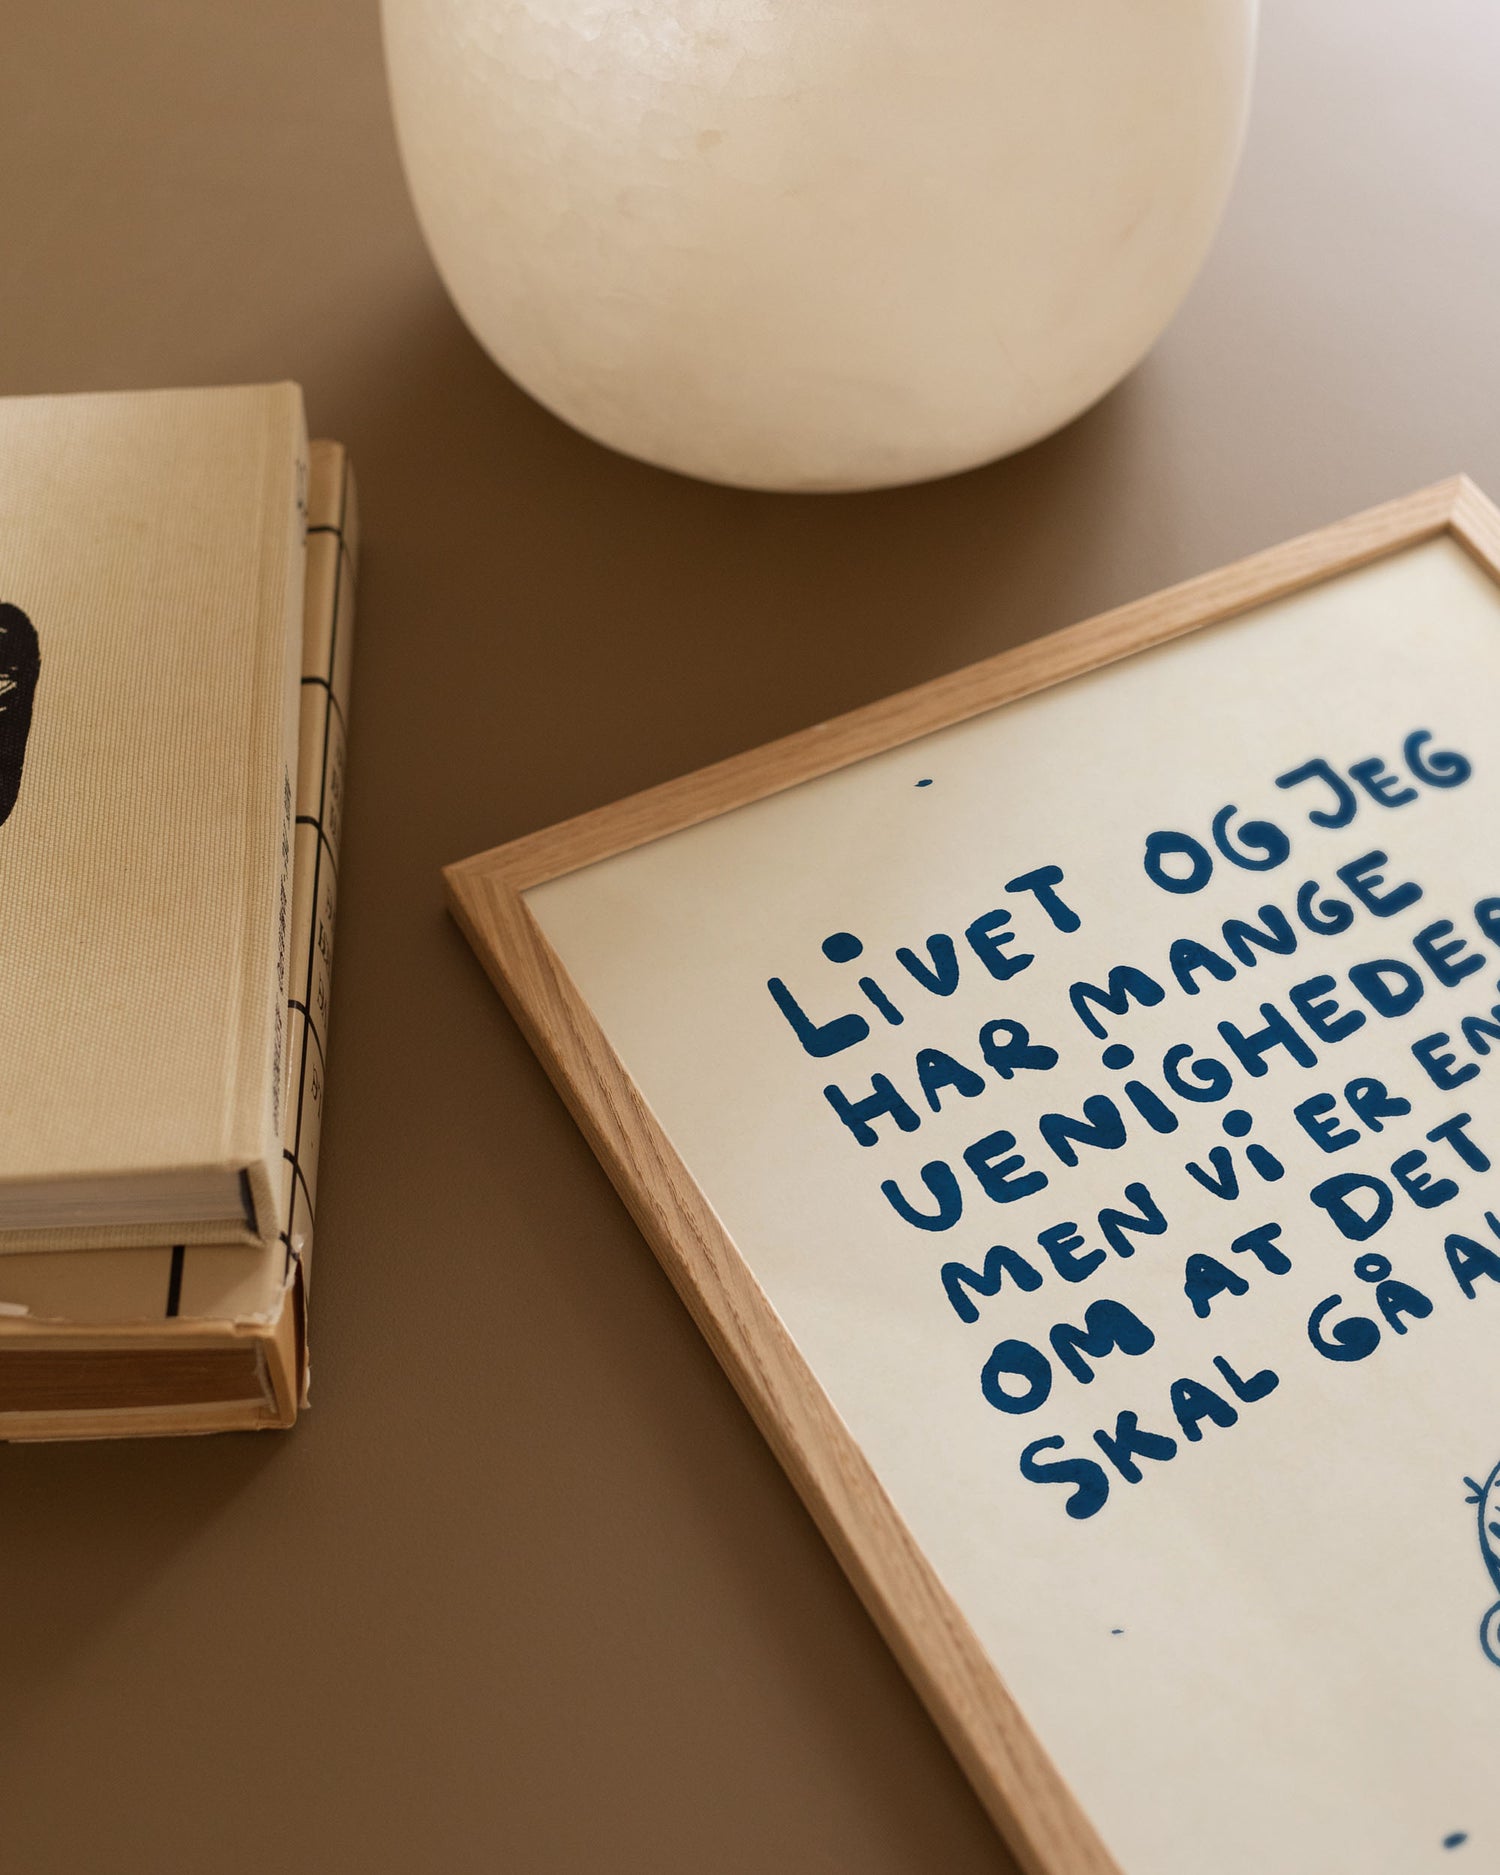 LiVET OG JEG
HAR MANGE
UENiGHEDER
MEN Vi ER
OM AT DET
SKAL GÅ